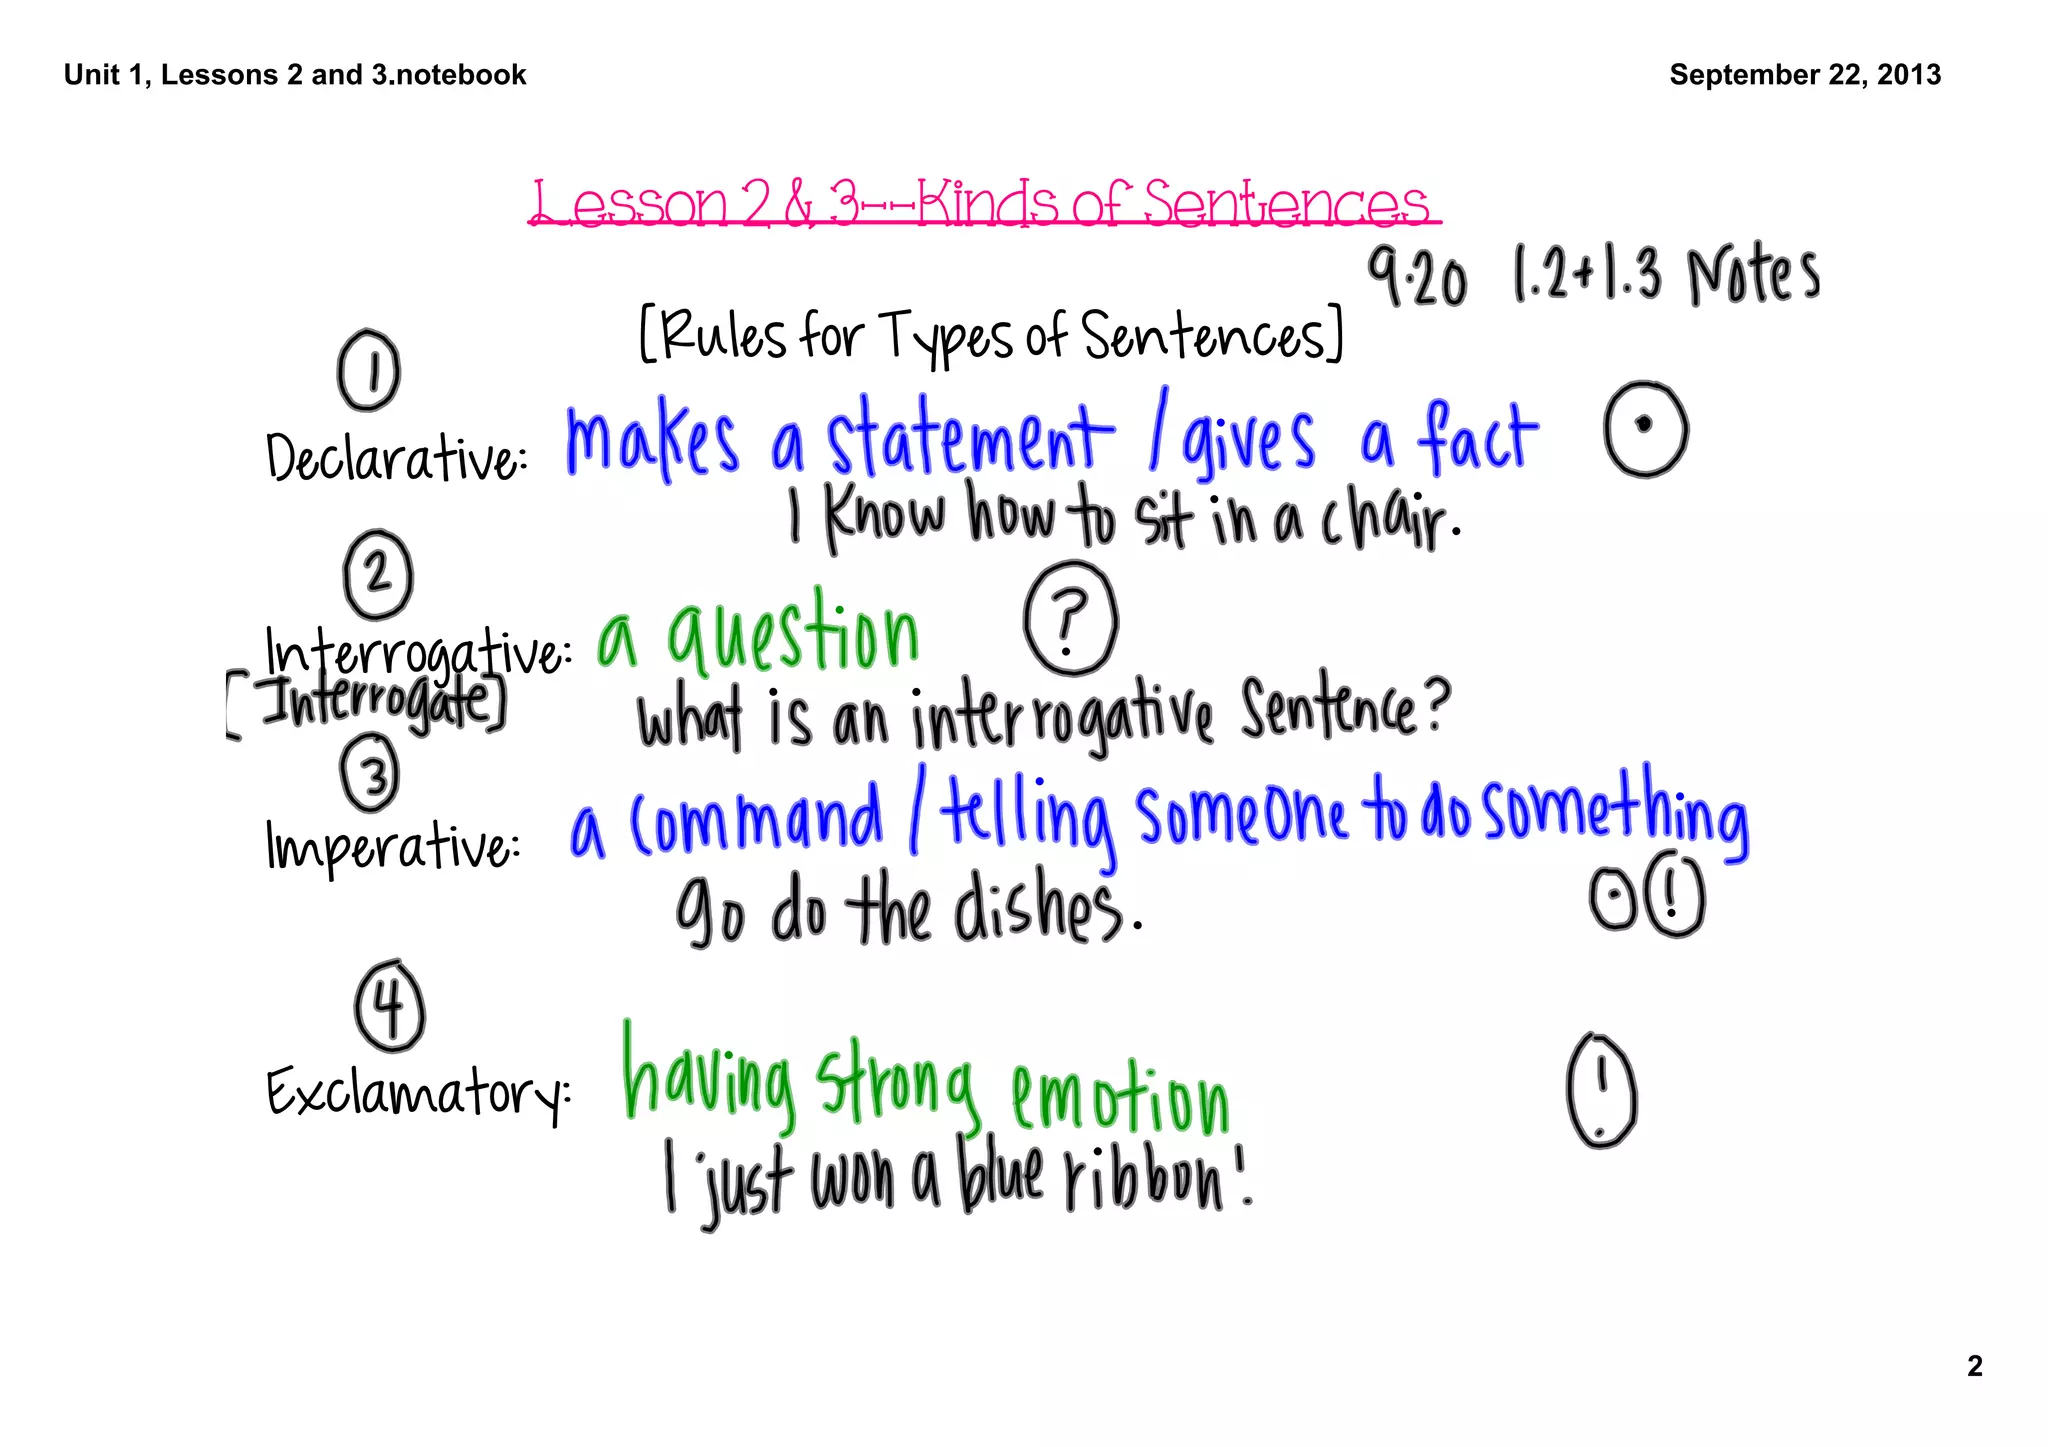 Unit 1, Lessons 2 and 3.notebook
September 22, 2013
Lesson 2 & 3--Kinds of Sentences
9.20 1.2+1.3 Notes
[Rules for Types of Sentences]
1
Declarative: makes a statement / gives a fact .
I know how to sit in a chair.
2
Interrogative: a question ?
[Interrogate] What is an interrogative sentence?
3
Imperative: a command / telling someone to do something
go do the dishes. . !
4
Exclamatory: having strong emotion !
I just won a blue ribbon!
2